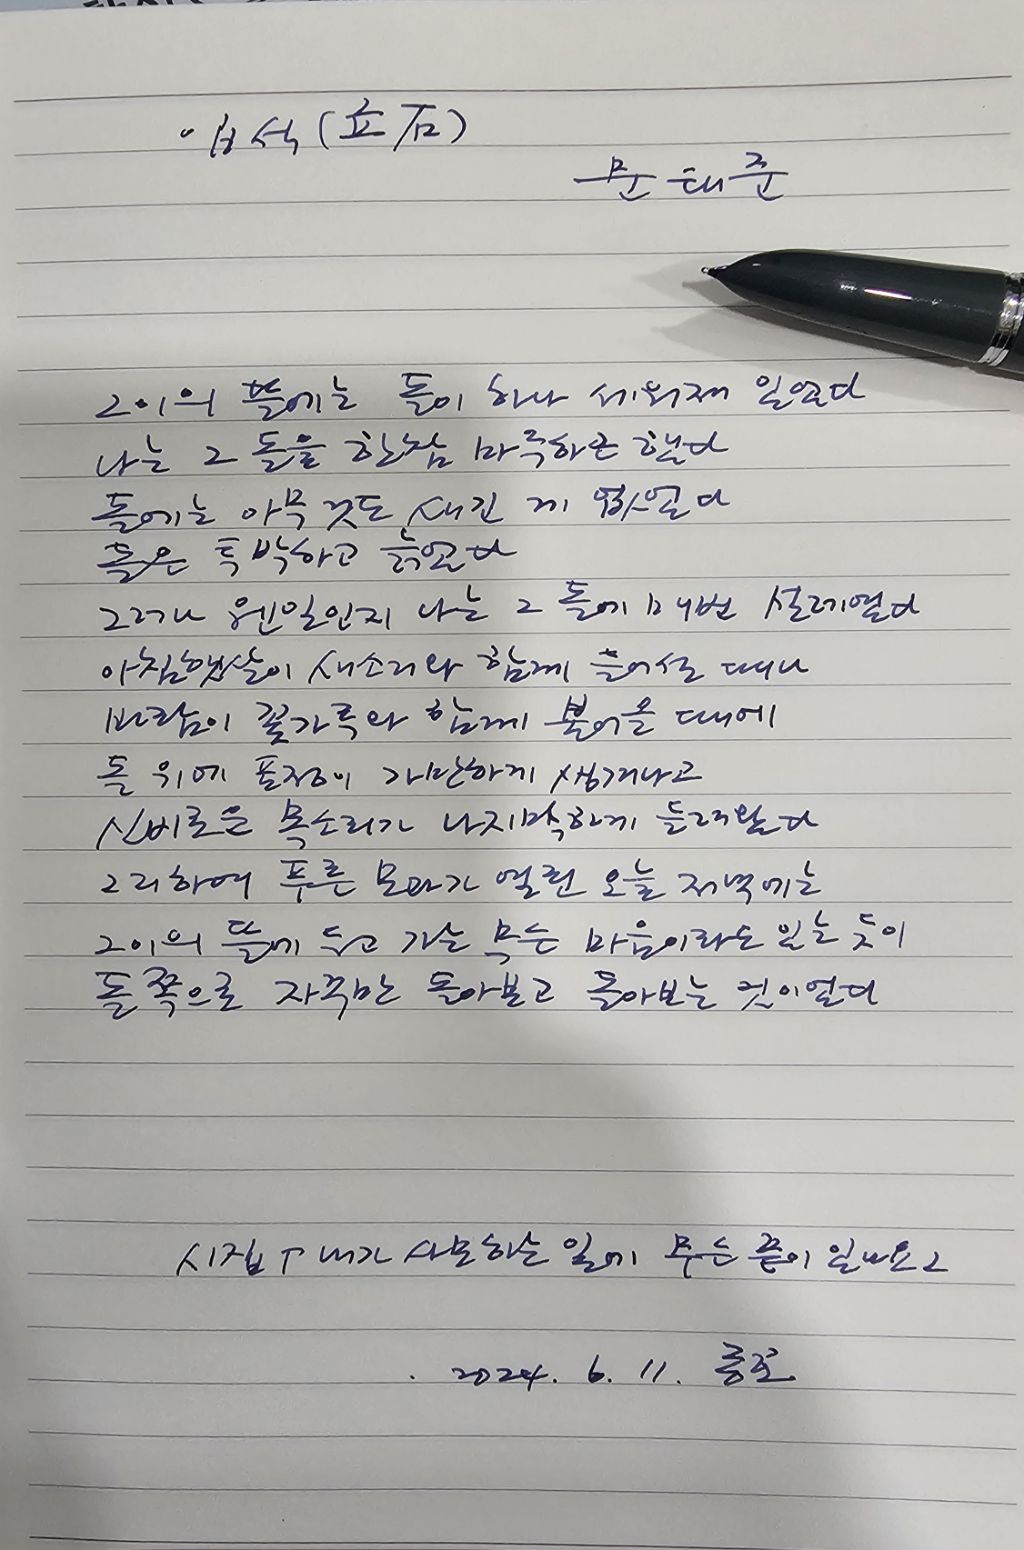 입석(立石)
문태준
그이의 뜰에는 돌이 하나 세워져 있었다
나는 그 돌을 한참 마주하곤 했다
돌에는 아무것도 새긴 게 없었다
돌은 투박하고 늙었다
그러나 웬일인지 나는 그 돌에 매번 설레었다
아침햇살이 새소리와 함께 들어설 때나
바람이 꽃가루와 함께 불어올 때에
돌 위에 표정이 가만하게 생겨나고
신비로운 목소리가 나지막하게 들려왔다
그리하여 푸른 모과가 열린 오늘 저녁에는
그이의 뜰에 두고 가는 무슨 마음이라도 있는 듯이
돌쪽으로 자꾸만 돌아보고 돌아보는 것이었다
시집 내가 사모하는 일에 무슨 끝이 있나요
2024. 6. 11.